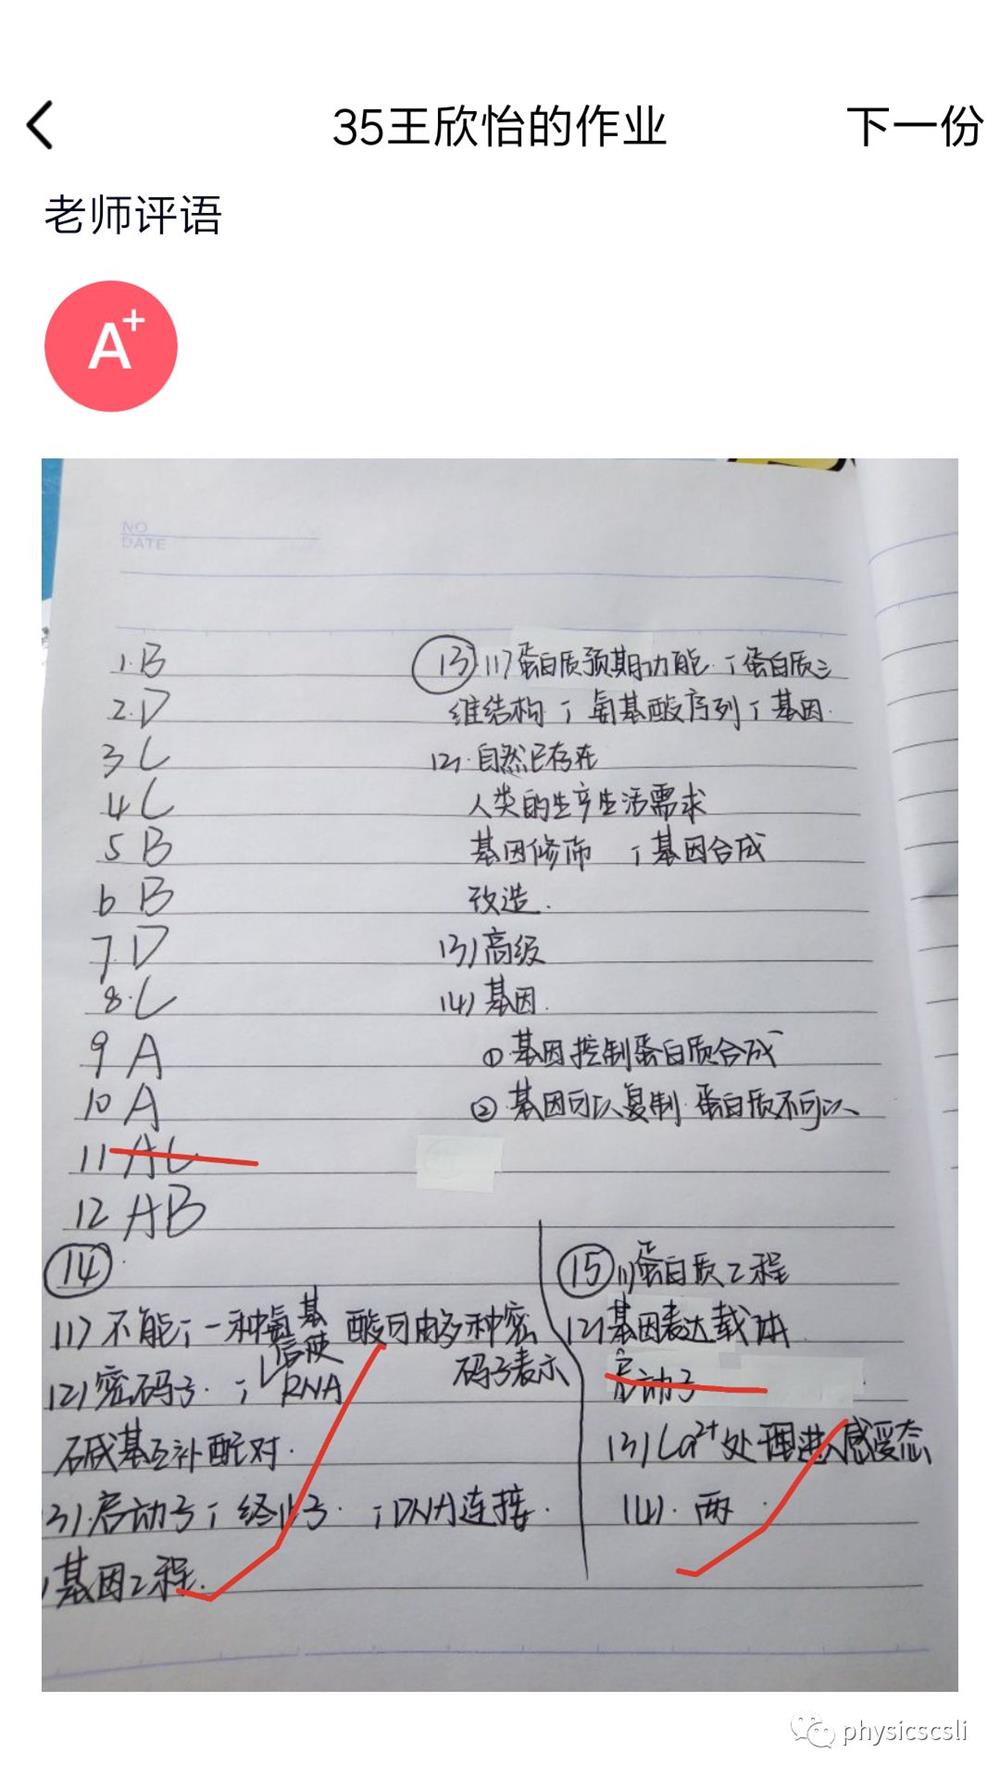 35王欣怡的作业
下一份
老师评语
A+
NO
DATE
1.B
2.D
3 C
4 C
5 B
6 B
7.D
8.C
9 A
10 A
11 AC
12 AB
⑬(1)蛋白质预期功能;蛋白质三
维结构;氨基酸序列;基因.
(2).自然已存在
人类的生产生活需求
基因修饰;基因合成
改造.
(3)高级
(4)基因.
①基因控制蛋白质合成
②基因可以复制.蛋白质不可以
⑭
(1)不能;一种氨基酸可由多种密
码子表示
(2)密码子.;信使RNA
碱基互补配对.
(3).启动子;终止子.;DNA连接.
基因工程.
⑮(1)蛋白质工程
(2)基因表达载体
启动子
(3)Ca²⁺处理进入感受态
(4).两.
physicscsli